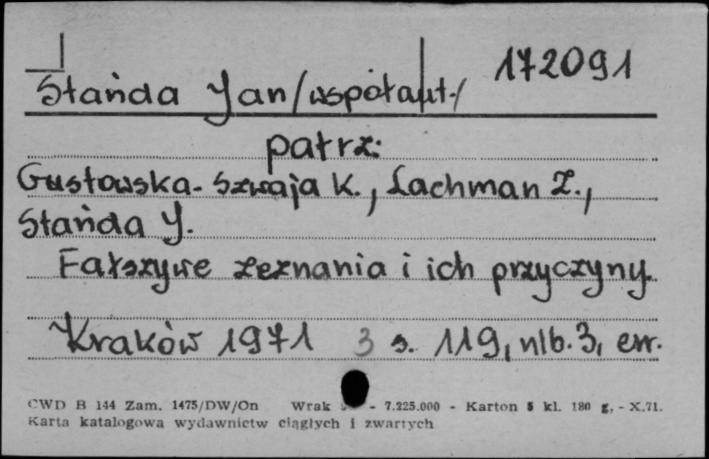 172091
Stańda Jan /współaut./
patrz:
Gustowska-Szwaja K., Lachman Z.,
Stańda J.
Fałszywe zeznania i ich przyczyny.
Kraków 1971 3 s. 119, nlb. 3, err.
CWD B 144 Zam. 1475/DW/On Wrak - 7.225.000 - Karton 5 kl. 180 g, - X.71.
Karta katalogowa wydawnictw ciągłych i zwartych